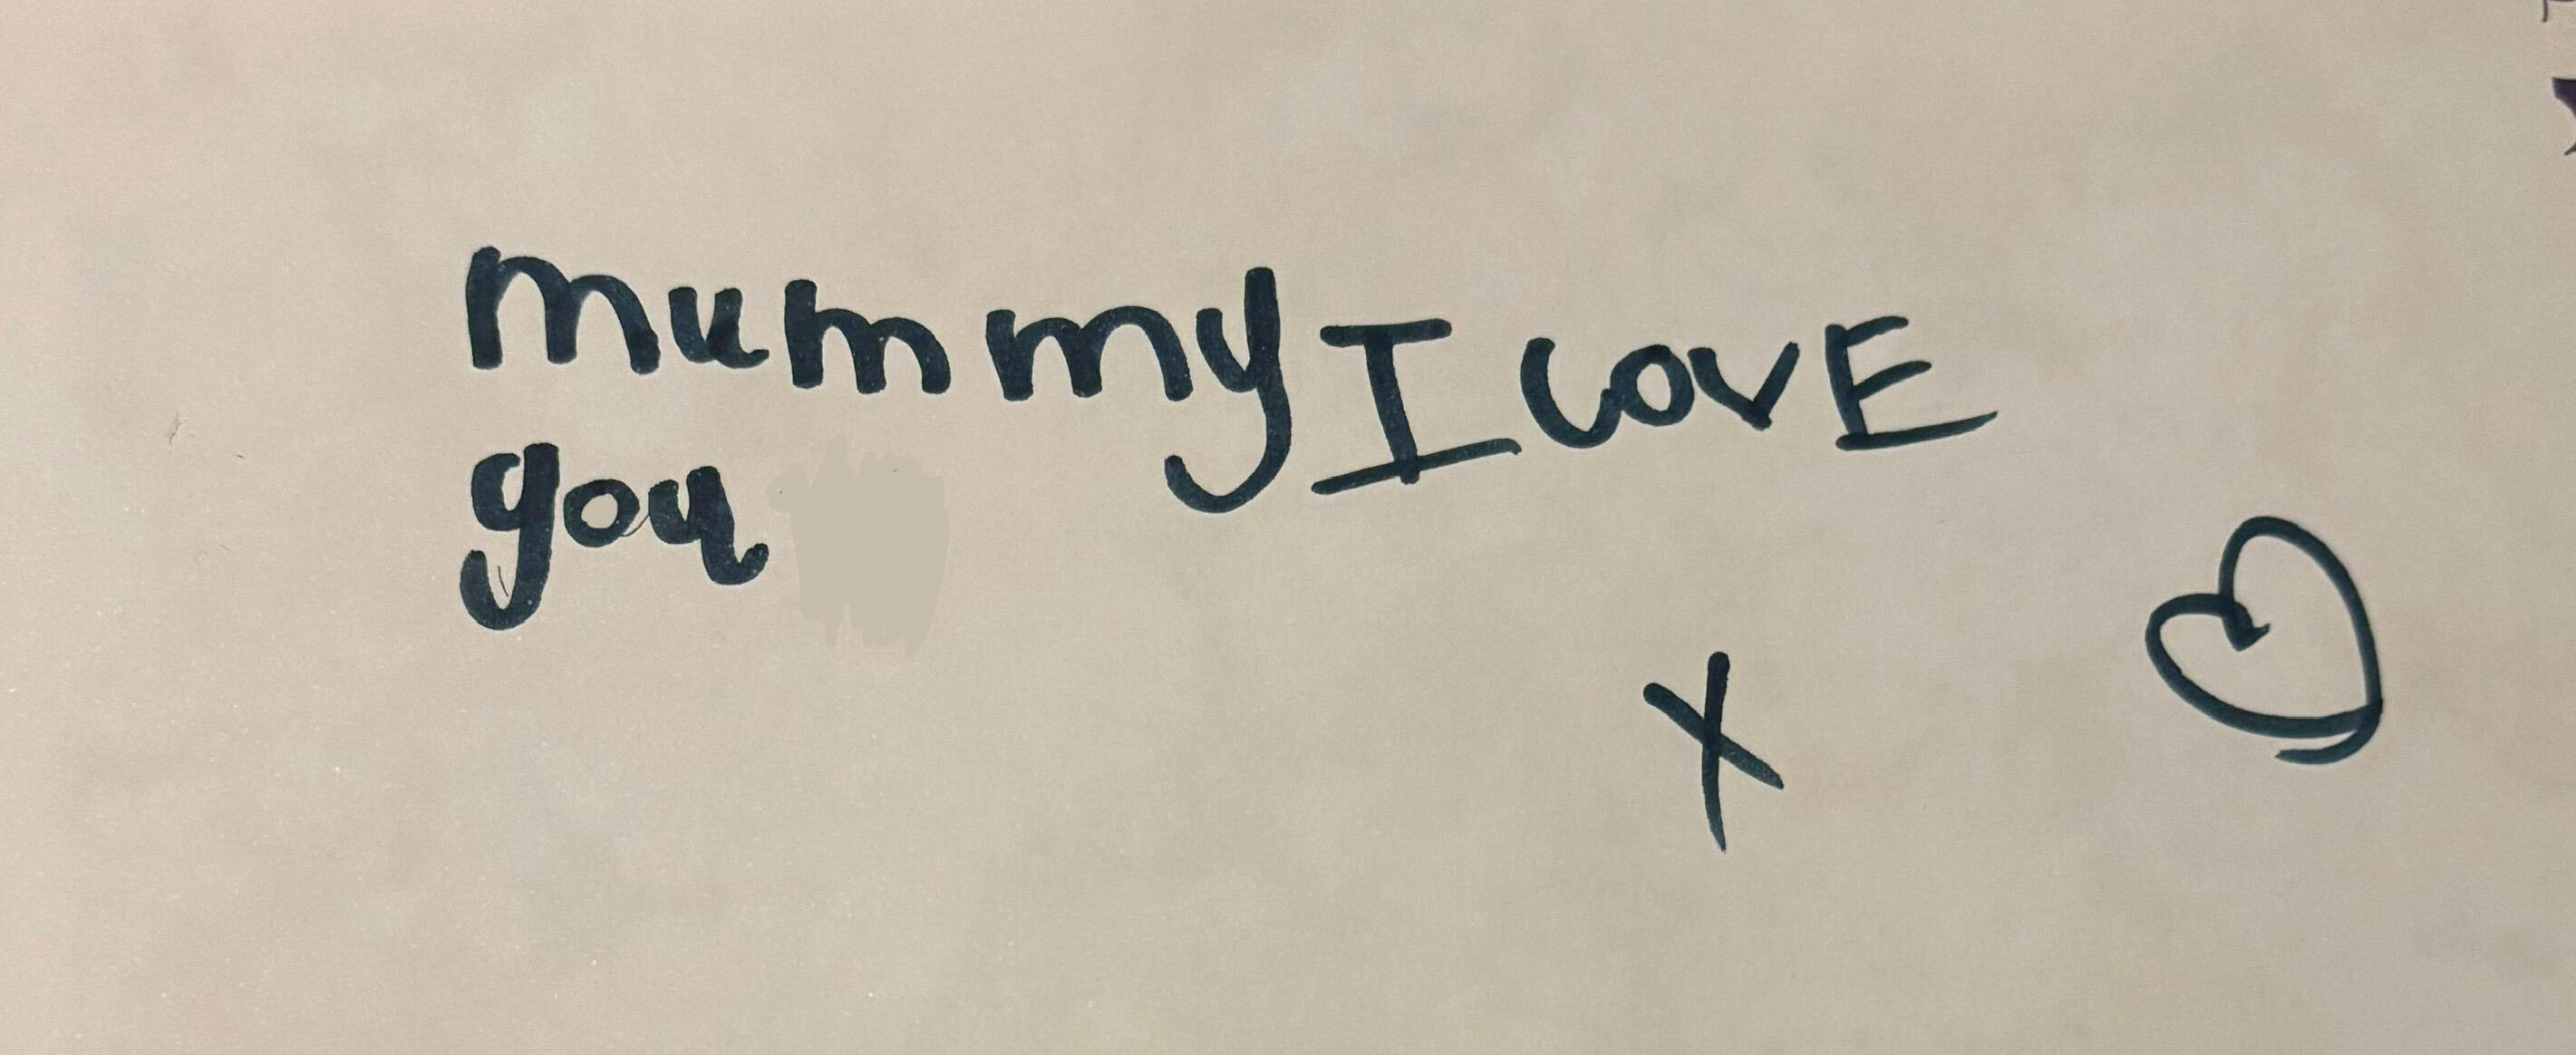 mummy I love
you
x